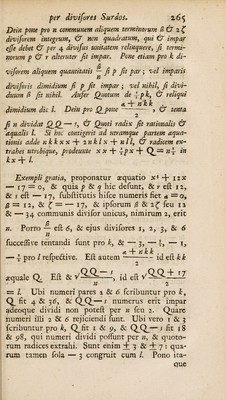 per divisores Surdos. 265
Dein pone pro n communem aliquem terminorum β & 2ζ
divisorem integrum, & non quadratum, qui & impar
esse debet & per 4 divisus unitatem relinquere, si termi-
norum p & r alteruter sit impar. Pone etiam pro k di-
visorem aliquem quantitatis β/n si p sit par; vel imparis
divisoris dimidium si p sit impar; vel nihil, si divi-
duum β sit nihil. Aufer Quotum de ½pk, & reliqui
dimidium dic l. Dein pro Q pone (α+nkk)/2, & tenta
si n dividat QQ—s, & Quoti radix sit rationalis &
æqualis l. Si hoc contigerit ad utramque partem æqua-
tionis adde nkkxx + 2nklx + nll, & radicem ex-
trahes utrobique, prodeunte xx + ½px + Q = n½ in
kx + l.
Exempli gratia, proponatur æquatio x⁴ + 12x
— 17 = 0, & quia p & q hic desunt, & r est 12,
& s est — 17, substitutis hisce numeris fiet α = 0,
β = 12, & ζ = — 17, & ipsorum β & 2ζ seu 12
& — 34 communis divisor unicus, nimirum 2, erit
n. Porro β/n est 6, & ejus divisores 1, 2, 3, & 6
successive tentandi sunt pro k, & — 3, — ½, — 1,
— ½ pro l respective. Est autem (α+nkk)/2 id est kk
æquale Q. Est & √(QQ—s)/n, id est √(QQ+17)/2
= l. Ubi numeri pares 2 & 6 scribuntur pro k,
Q fit 4 & 36, & QQ—s numerus erit impar
adeoque dividi non potest per n seu 2. Quare
numeri illi 2 & 6 rejiciendi sunt. Ubi vero 1 & 3
scribuntur pro k, Q fit 1 & 9, & QQ—s fit 18
& 98, qui numeri dividi possunt per n, & quoto-
rum radices extrahi. Sunt enim ± 3 & ± 7: qua-
rum tamen sola — 3 congruit cum l. Pono ita-
que